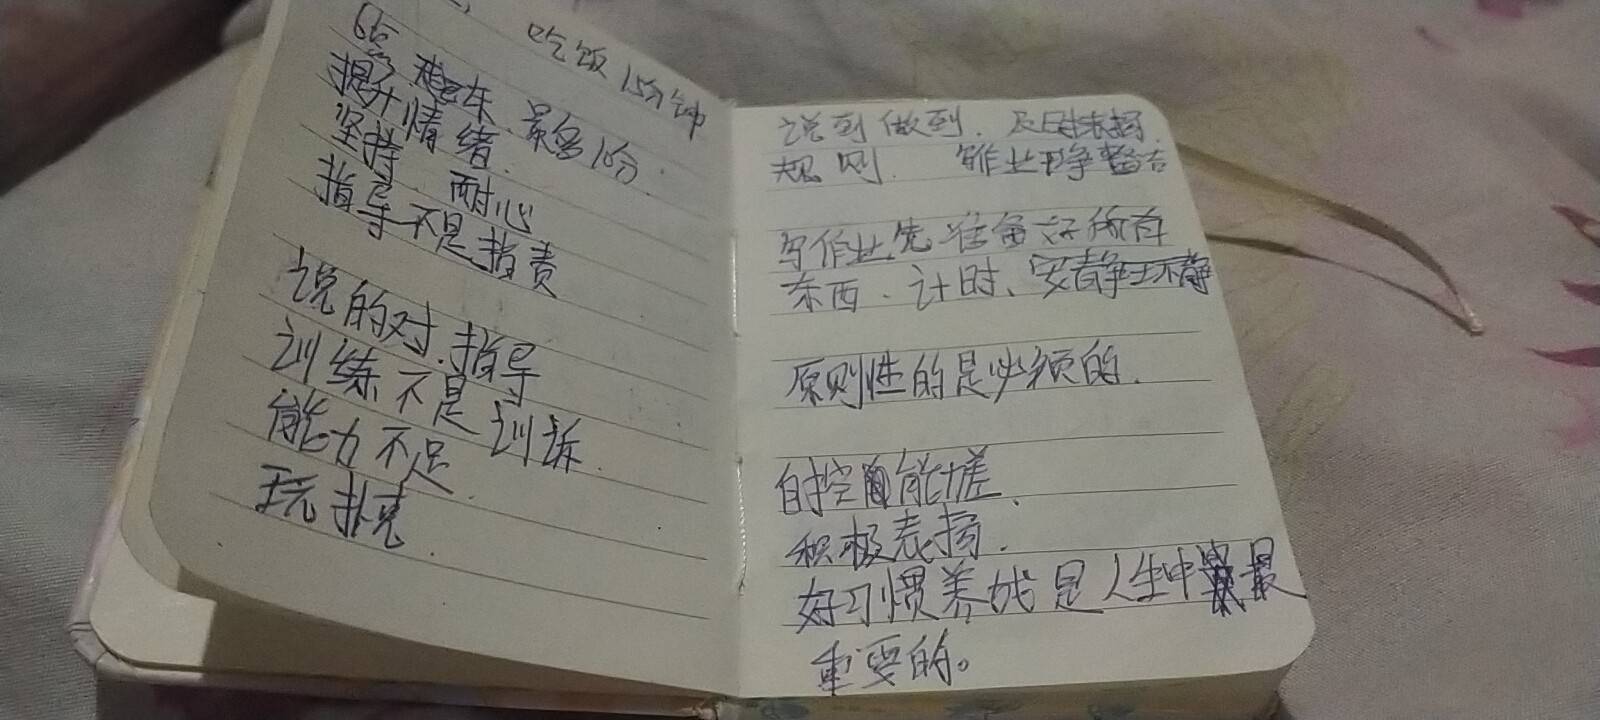 吃饭15分钟
6点 起床.最多10分.
提升情绪.
坚持.耐心
指导不是指责
说的对.指导
训练不是训诉.
能力不足.
玩扑克.
说到做到.及时表扬.
规则. 写作业干净整洁
写作业先准备好所有
东西.计时、安静
原则性的是必须的.
自控能差.
积极表扬.
好习惯养成是人生中最
重要的。